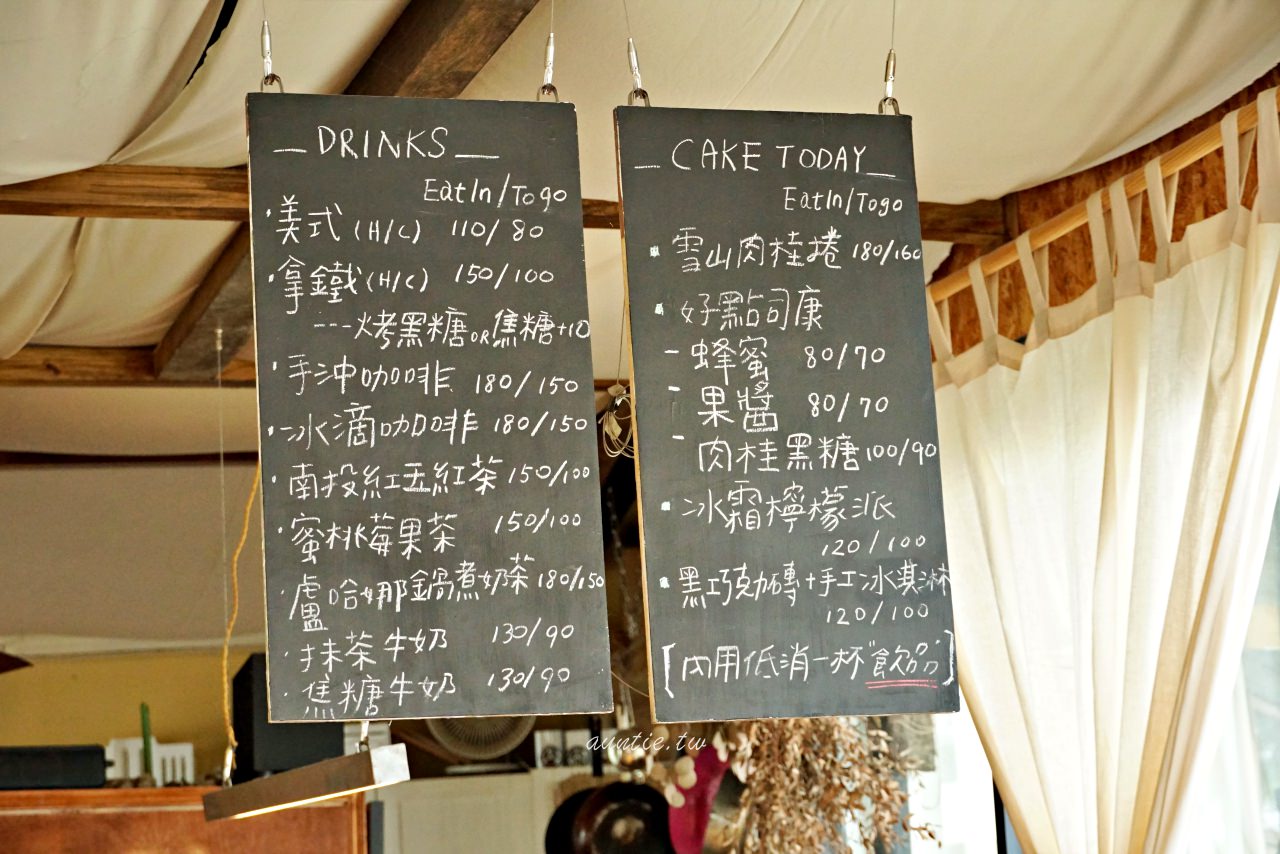 DRINKS
EatIn/Togo
美式(H/C) 110/80
拿鐵(H/C) 150/100
---烤黑糖OR焦糖+10
手沖咖啡 180/150
冰滴咖啡 180/150
南投紅玉紅茶 150/100
蜜桃莓果茶 150/100
盧哈娜鍋煮奶茶 180/150
抹茶牛奶 130/90
焦糖牛奶 130/90
CAKE TODAY
EatIn/Togo
雪山肉桂捲 180/160
好點司康
- 蜂蜜 80/70
- 果醬 80/70
- 肉桂黑糖 100/90
冰霜檸檬派
120/100
黑巧克力磚+手工冰淇淋
120/100
[內用低消一杯"飲品"]
auntie.tw